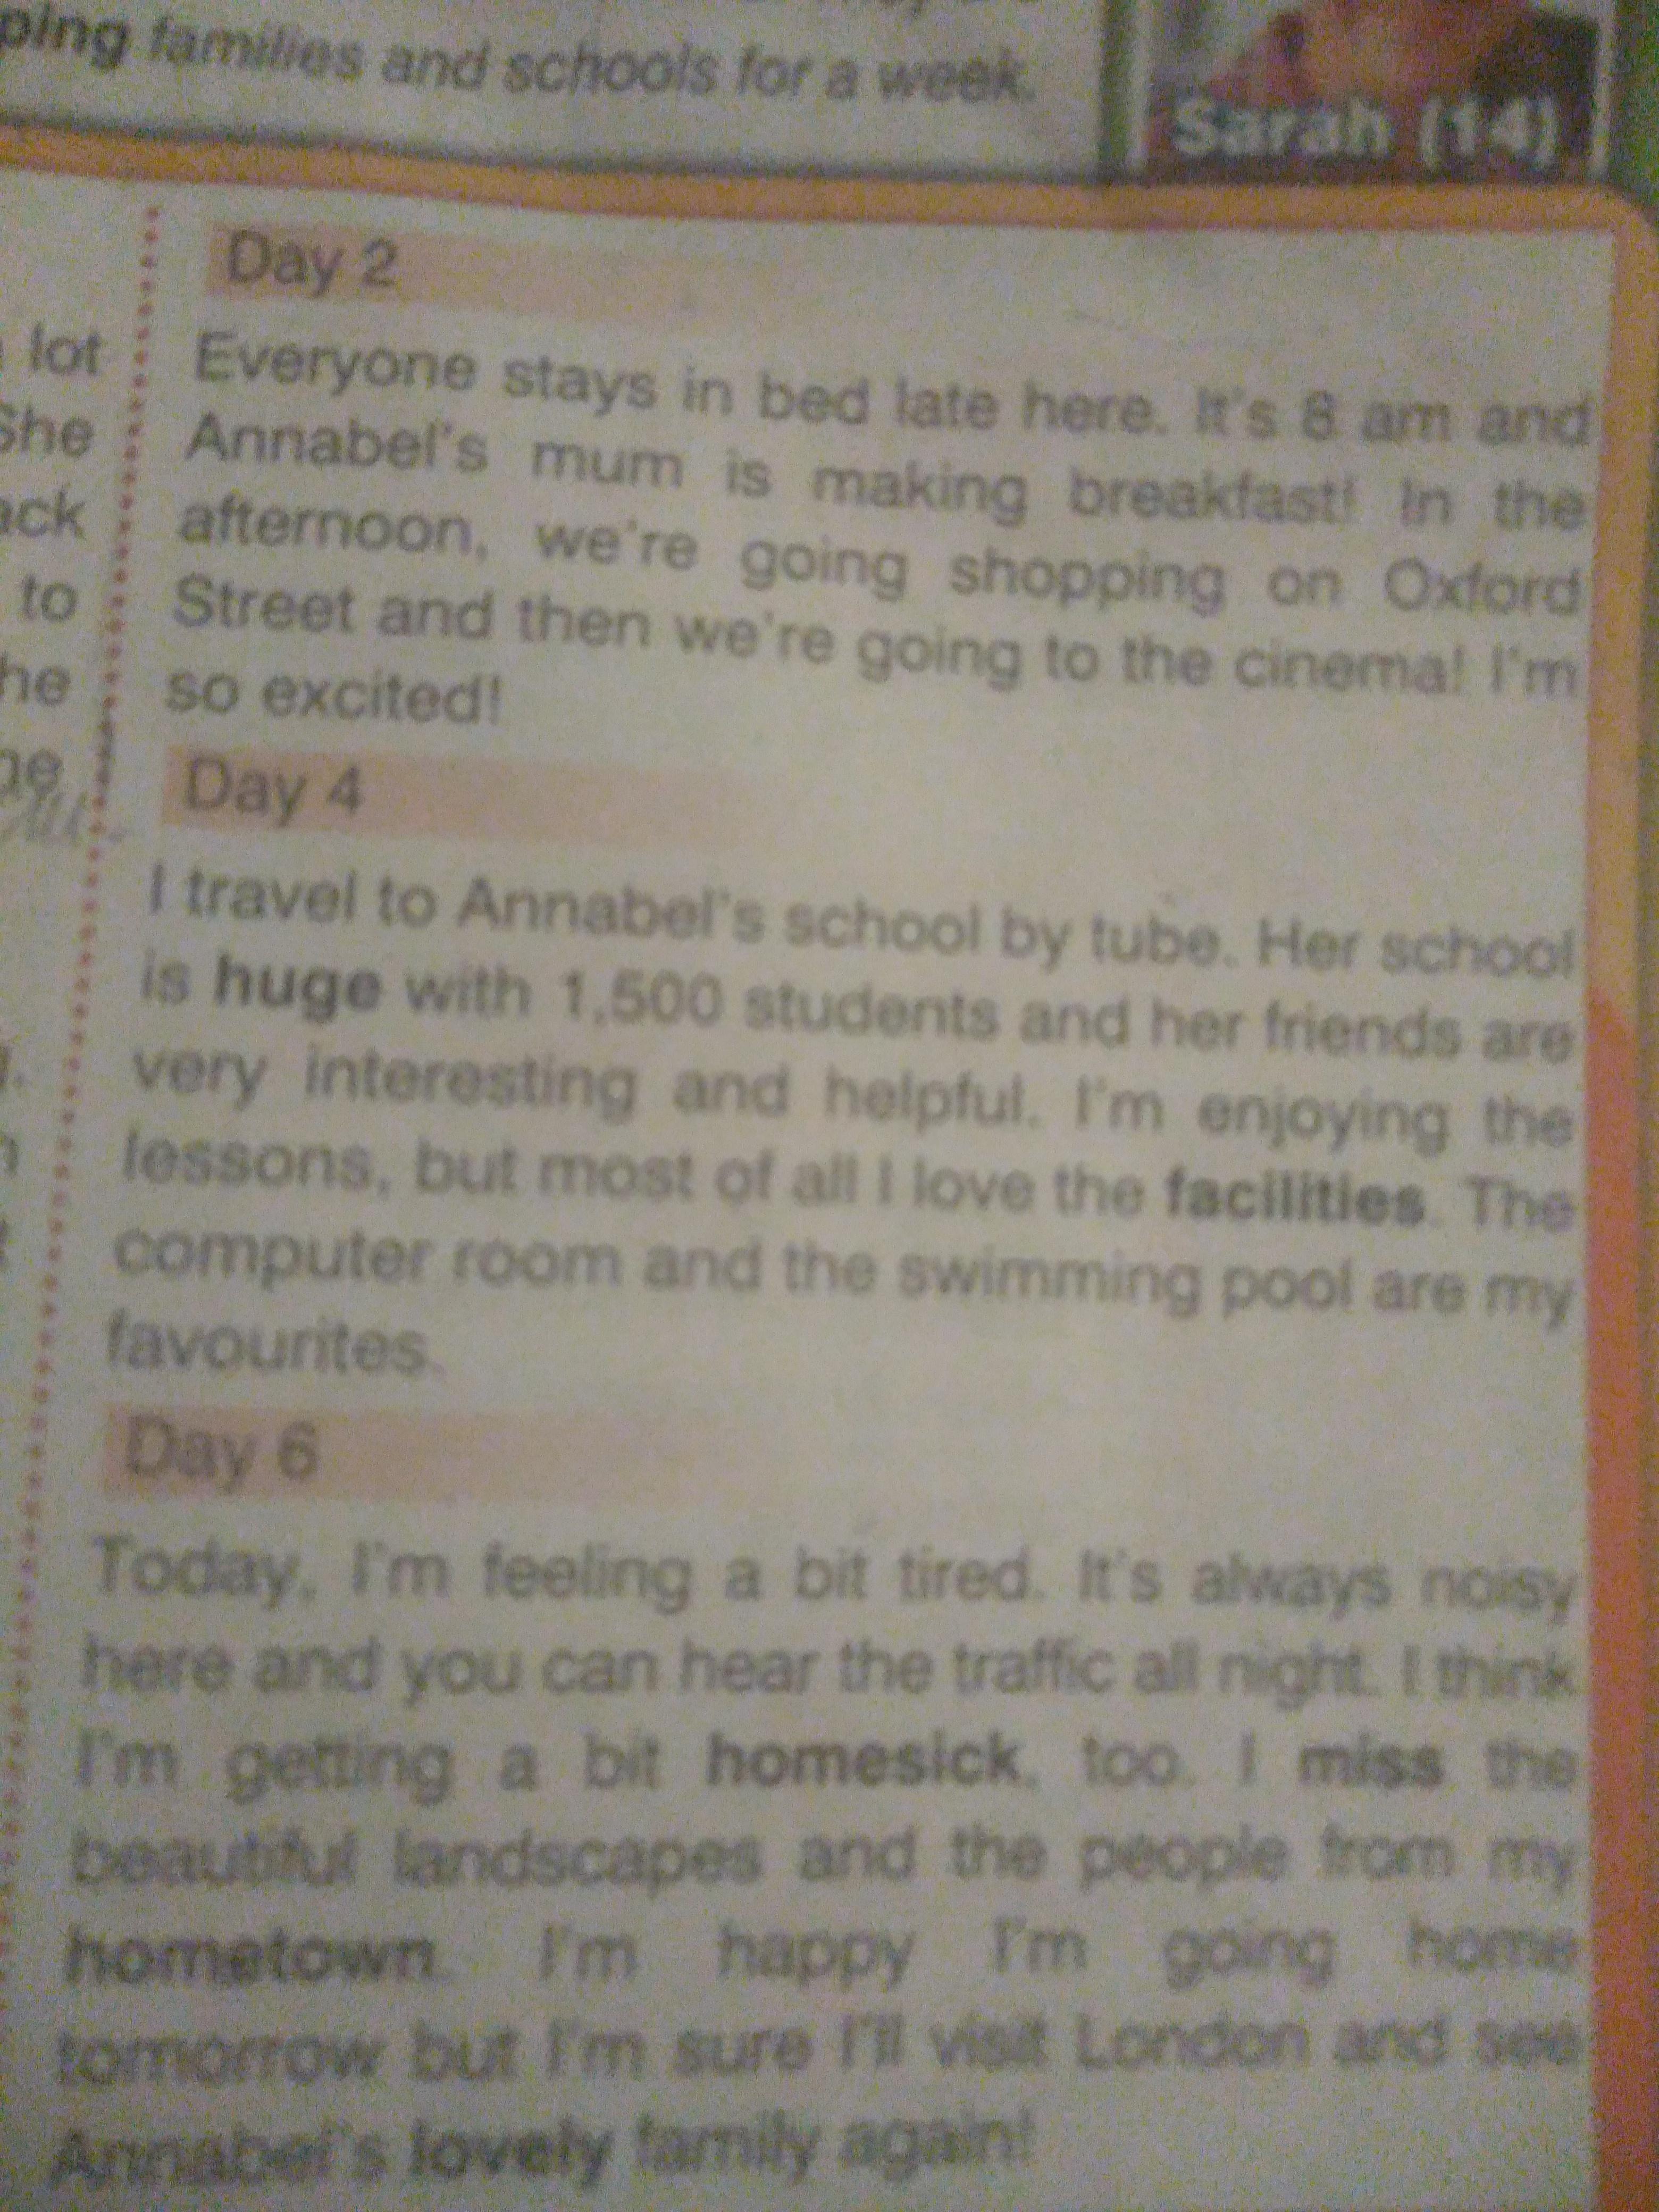 families and schools for a week.
Sarah (14)
lot
to
Day 2
Everyone stays in bed late here. It's 8 am and
Annabel's mum is making breakfast! In the
afternoon, we're going shopping on Oxford
Street and then we're going to the cinema! I'm
so excited!
Day 4
I travel to Annabel's school by tube. Her school
is huge with 1,500 students and her friends are
very interesting and helpful. I'm enjoying the
lessons, but most of all I love the facilities. The
computer room and the swimming pool are my
favourites.
Day 6
Today, I'm feeling a bit tired. It's always noisy
here and you can hear the traffic all night. I think
I'm getting a bit homesick, too. I miss the
beautiful landscapes and the people from my
hometown. I'm happy I'm going home
tomorrow but I'm sure I'll visit London and see
Annabel's lovely family again!